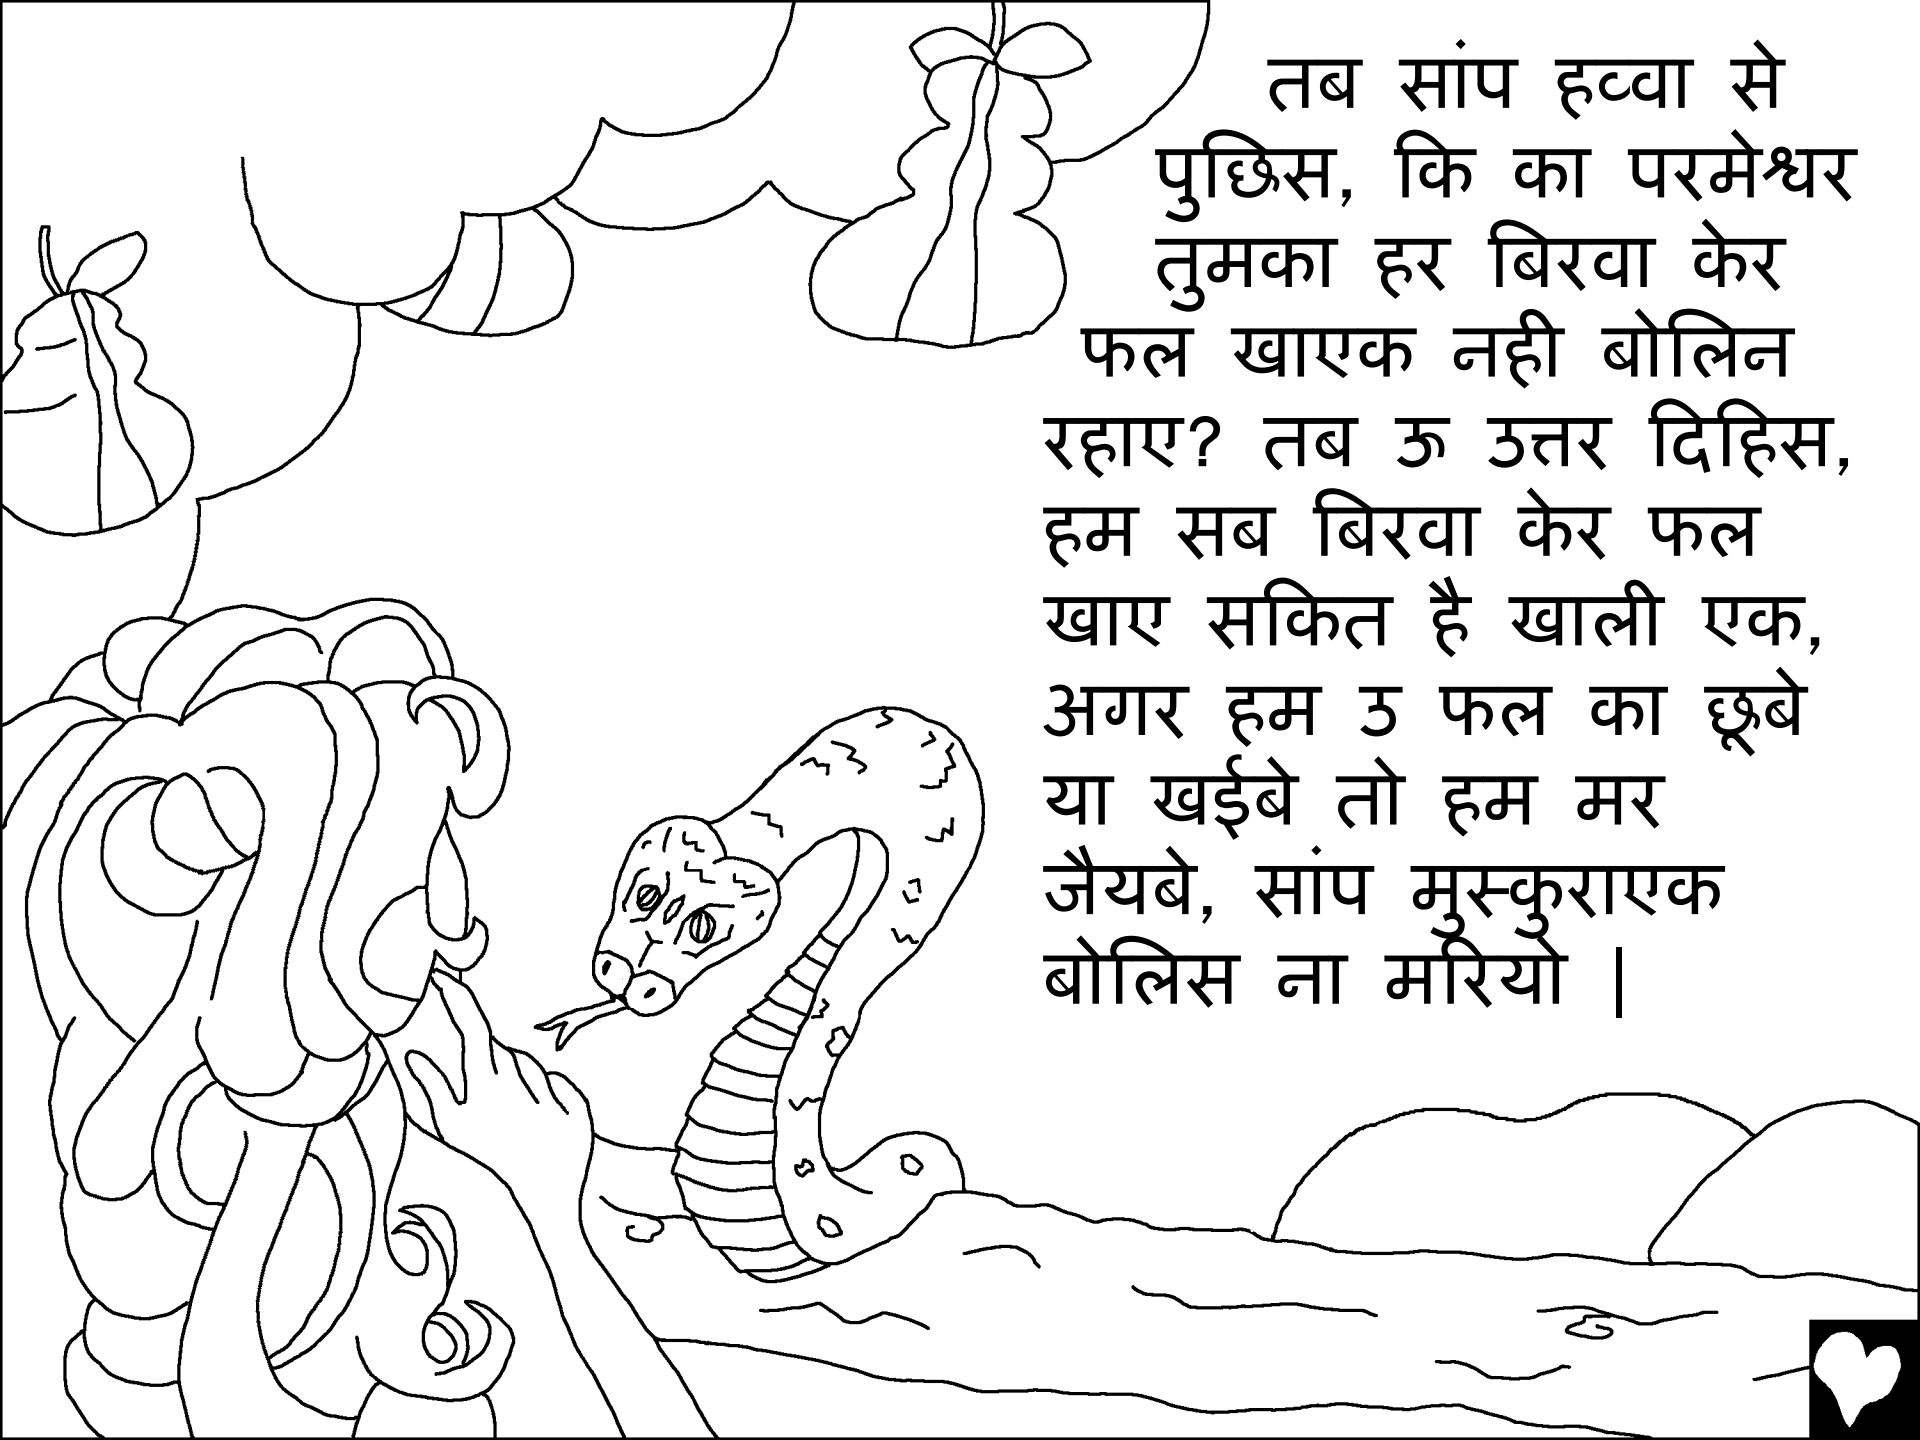 तब सांप हव्वा से
पुछिस, कि का परमेश्वर
तुमका हर बिरवा केर
फल खाएक नही बोलिन
रहाए? तब ऊ उत्तर दिहिस,
हम सब बिरवा केर फल
खाए सकित है खाली एक,
अगर हम उ फल का छूबे
या खईबे तो हम मर
जैयबे, सांप मुस्कुराएक
बोलिस ना मरियो |